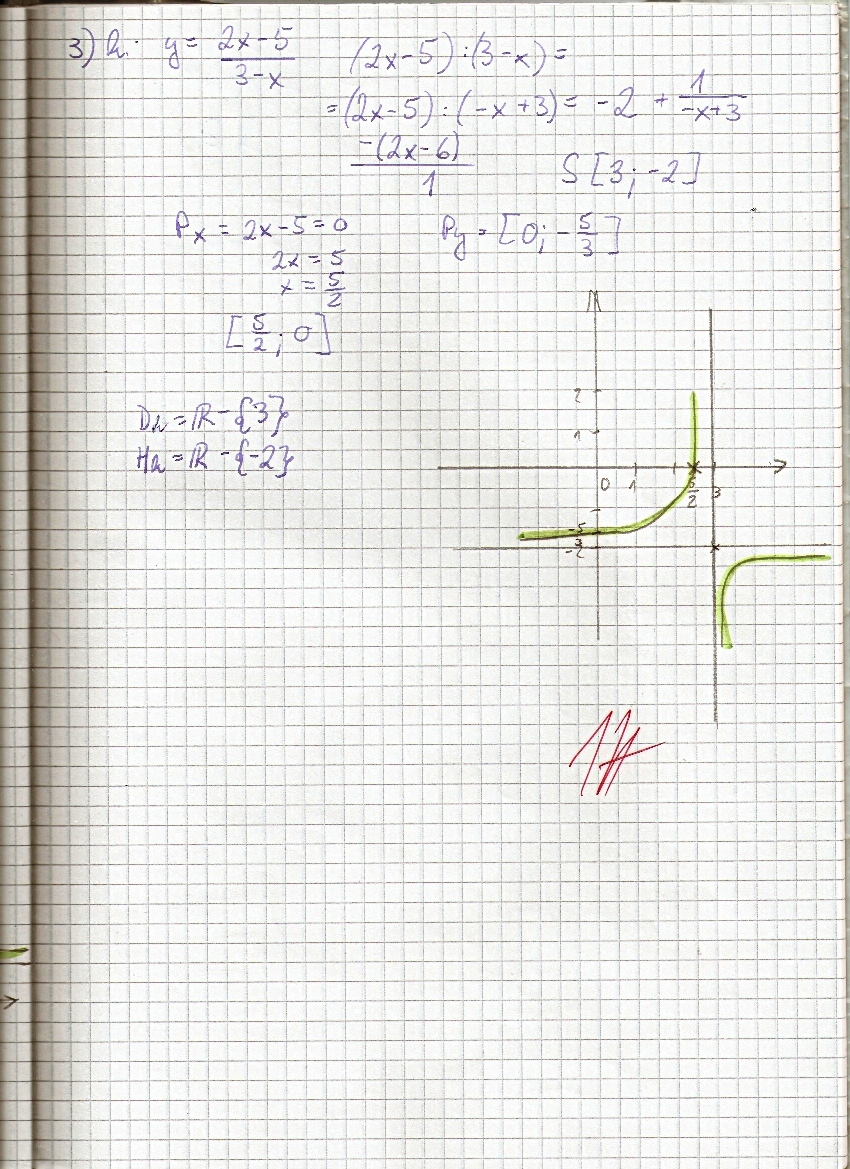 3) h: y = 2x-5 / 3-x (2x-5):(3-x) =
= (2x-5):(-x+3) = -2 + 1 / -x+3
-(2x-6)
1 S[3; -2]
Px = 2x-5=0 Py = [0; -5/3]
2x = 5
x = 5/2
[5/2; 0]
Dh = R - {3}
Hh = R - {-2}
2
1
0 1 5/2 3
-5/3
-2